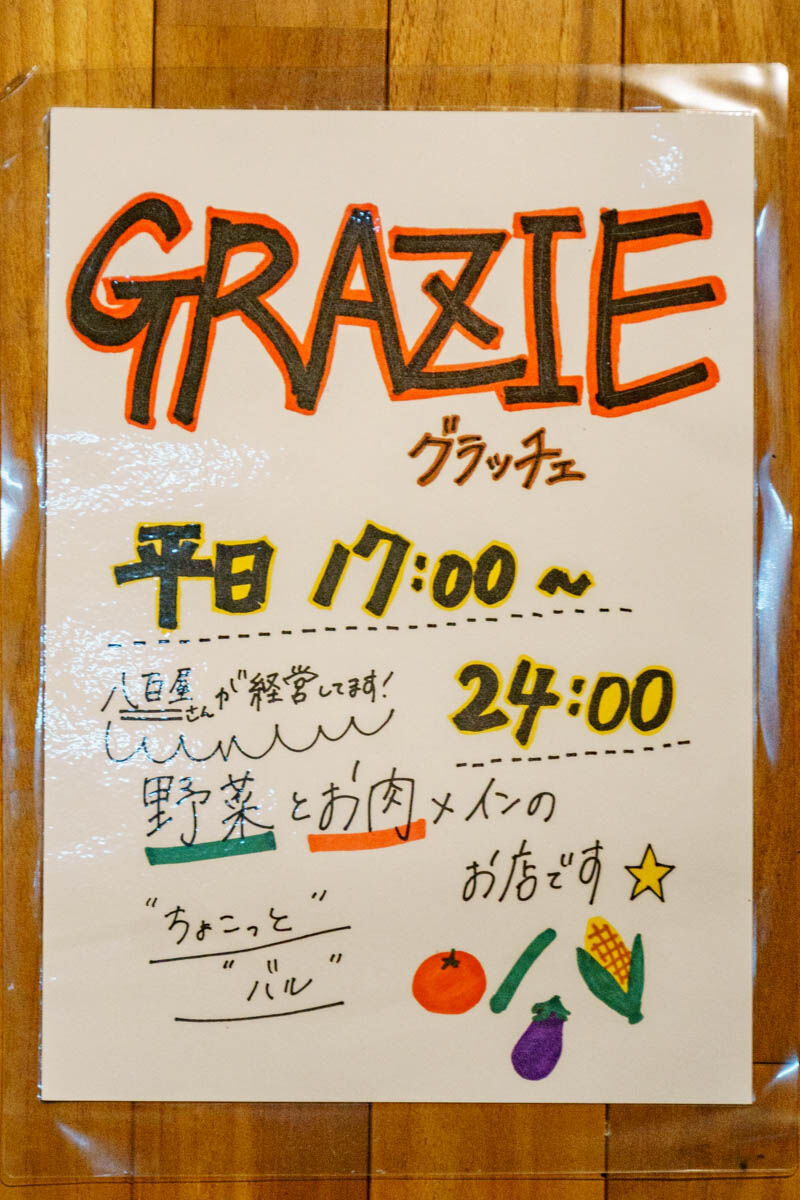 GRAZIE
グラッチェ
平日 17:00～
24:00
八百屋さんが経営してます!
野菜とお肉メインの
お店です
"ちょこっと"
"バル"